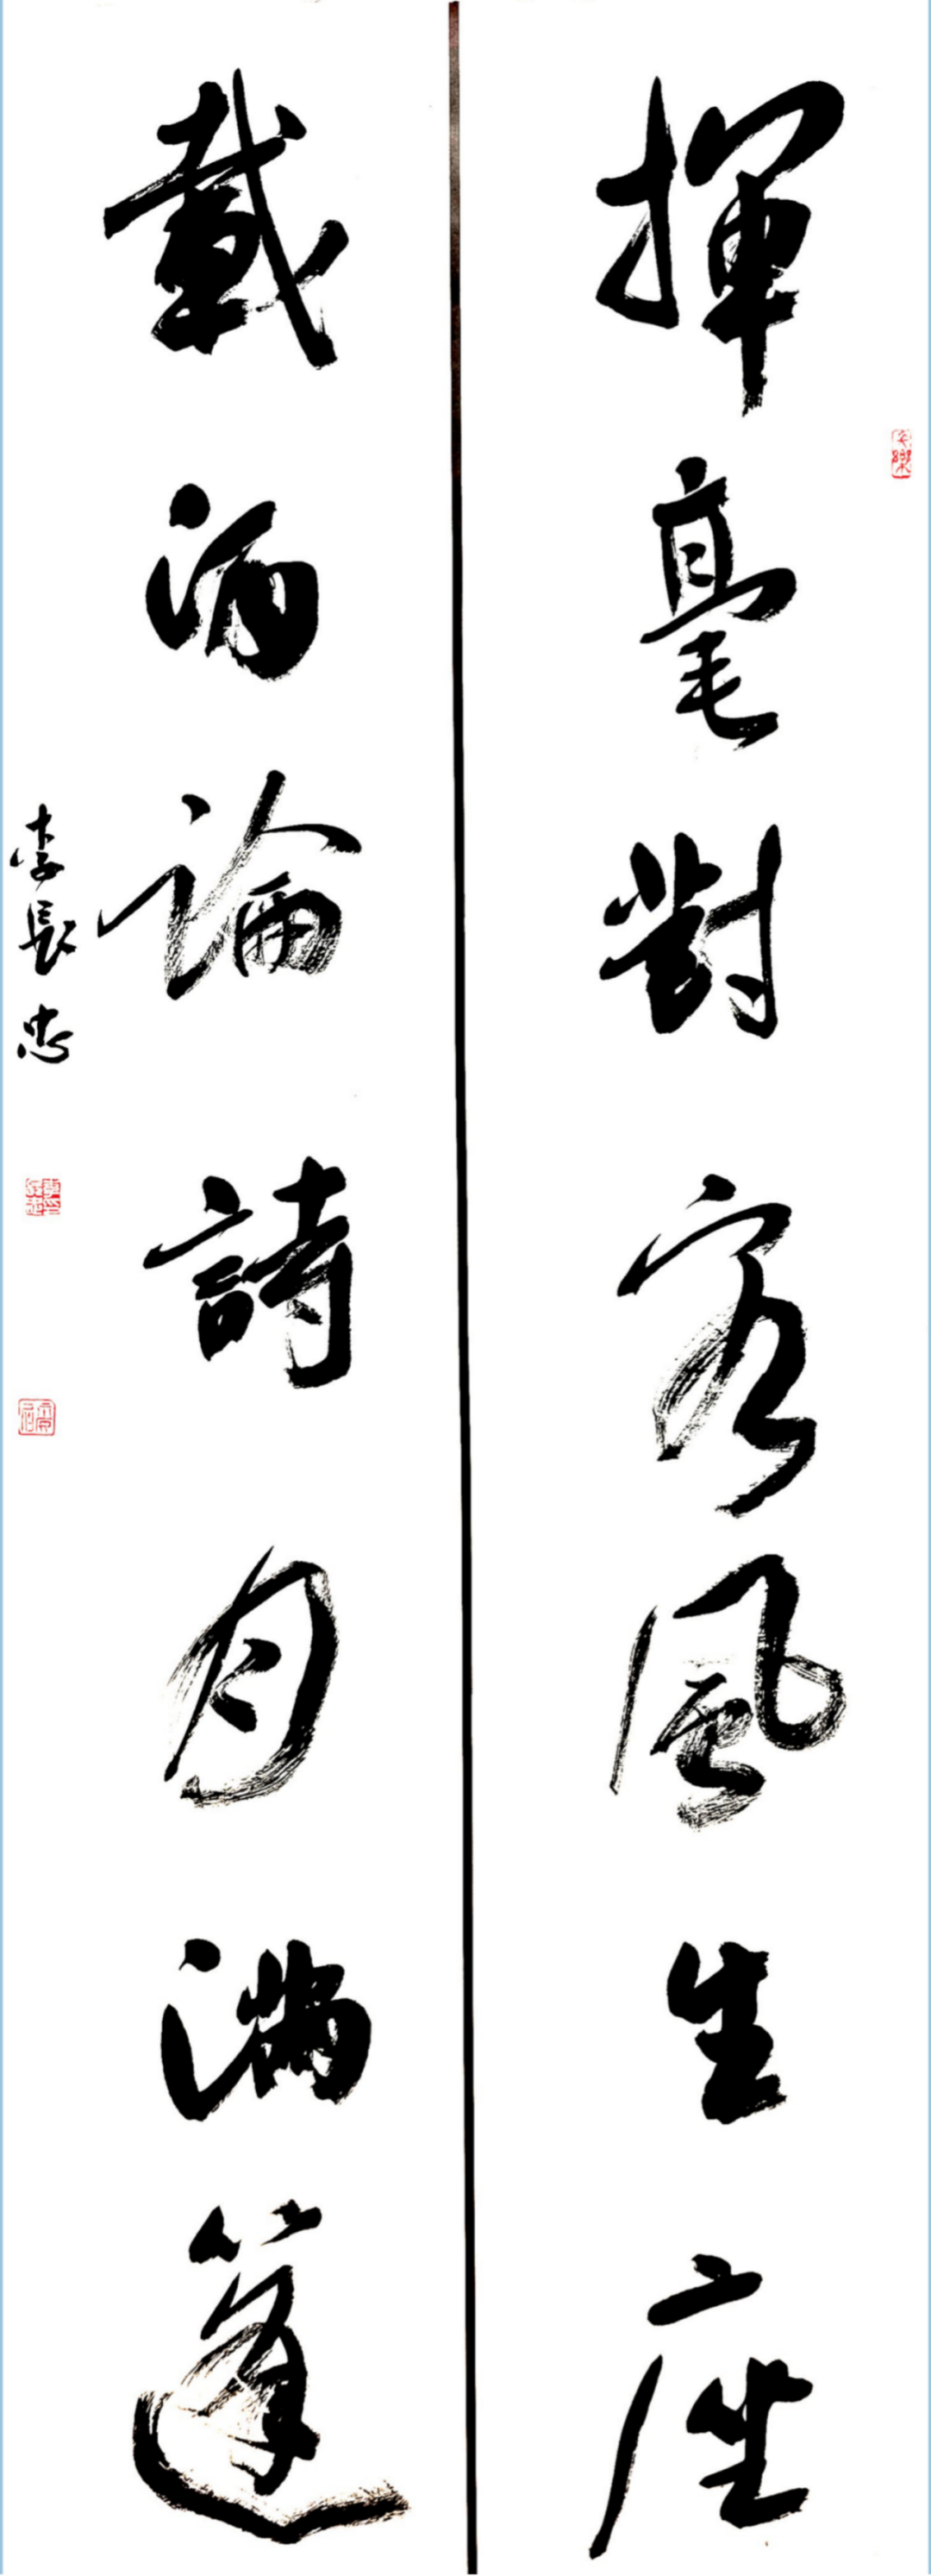 揮毫對客風生座
載酒論詩月滿篷
李長忠